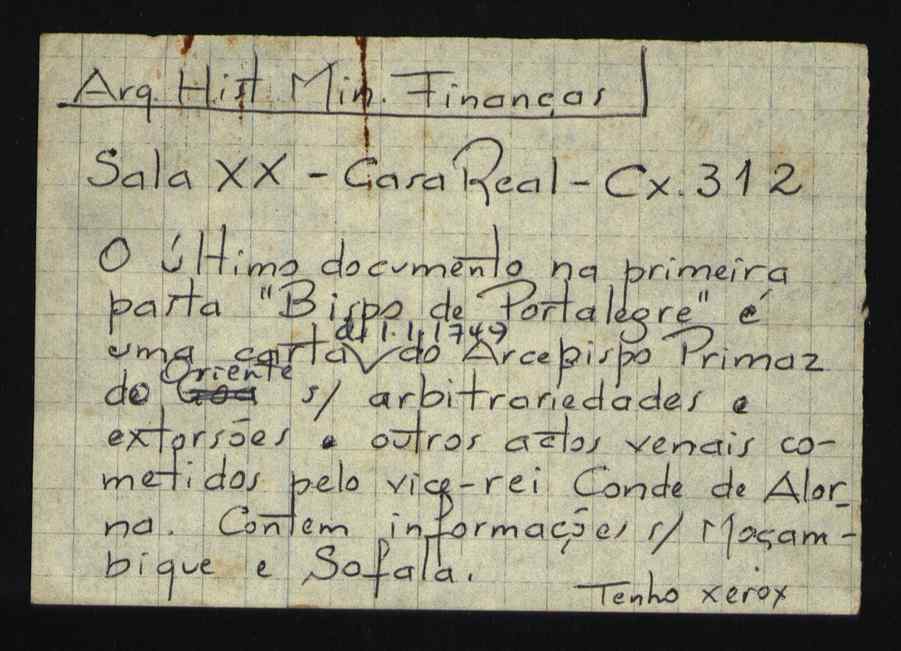 Arq. Hist. Min. Finanças
Sala XX - Casa Real - Cx. 312
O último documento na primeira
pasta "Bispo de Portalegre" é
de 1.1.1749
uma carta do Arcebispo Primaz
Oriente
do Goa s/ arbitrariedades e
extorsões e outros actos venais co-
metidos pelo vice-rei Conde de Alor-
na. Contem informações s/ Moçam-
bique e Sofala.
Tenho xerox